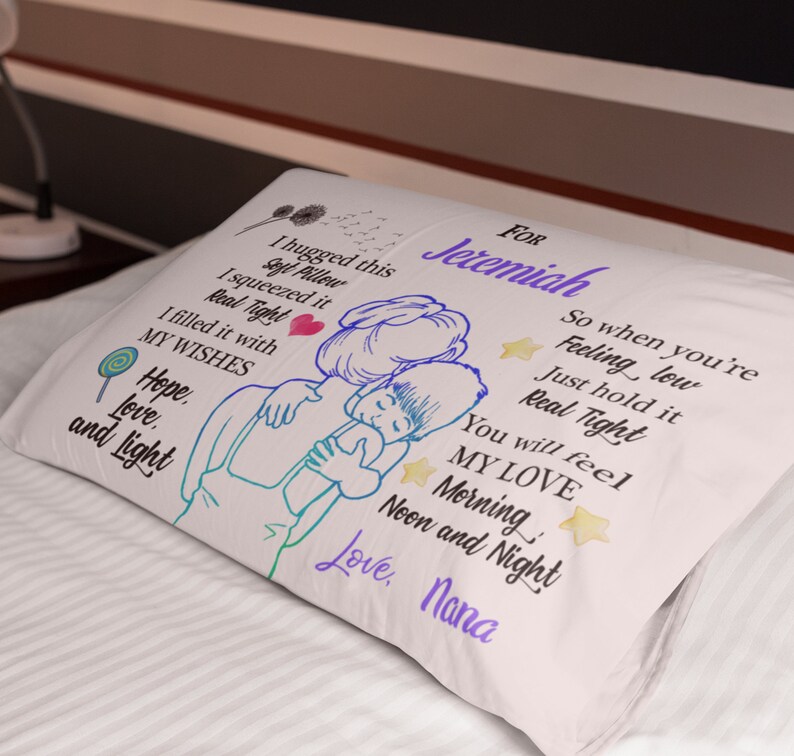 For
Jeremiah
I hugged this
Soft Pillow
I squeezed it
Real Tight
I filled it with
MY WISHES
Hope,
Love,
and Light
So when you're
Feeling low
Just hold it
Real Tight
You will feel
MY LOVE
Morning,
Noon and Night
Love, Nana